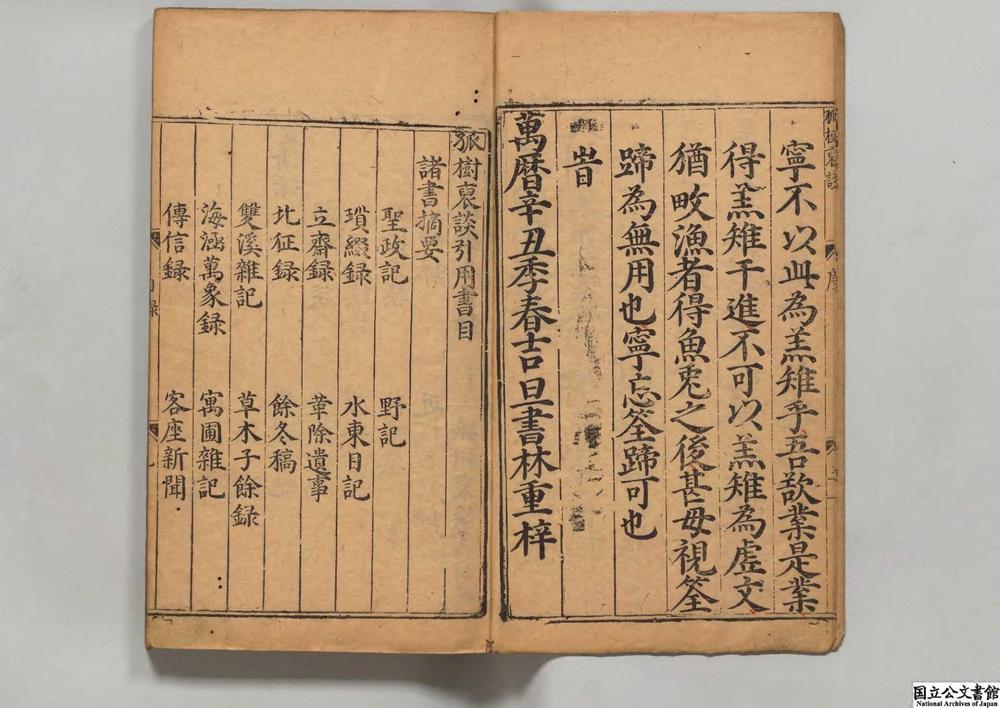 寧不以此為羔雉乎吾欲業是業
得羔雉干進不可以羔雉為虛文
猶畋漁者得魚兎之後甚毋視筌
蹄為無用也寧忘筌蹄可也
旹
萬曆辛丑季春吉旦書林重梓
狐樹裒談引用書目
諸書摘要
聖政記
野記
瑣綴錄
水東日記
立齋錄
革除遺事
北征錄
餘冬稿
雙溪雜記
草木子餘錄
海涵萬象錄
寓圃雜記
傳信錄
客座新聞
国立公文書館
National Archives of Japan